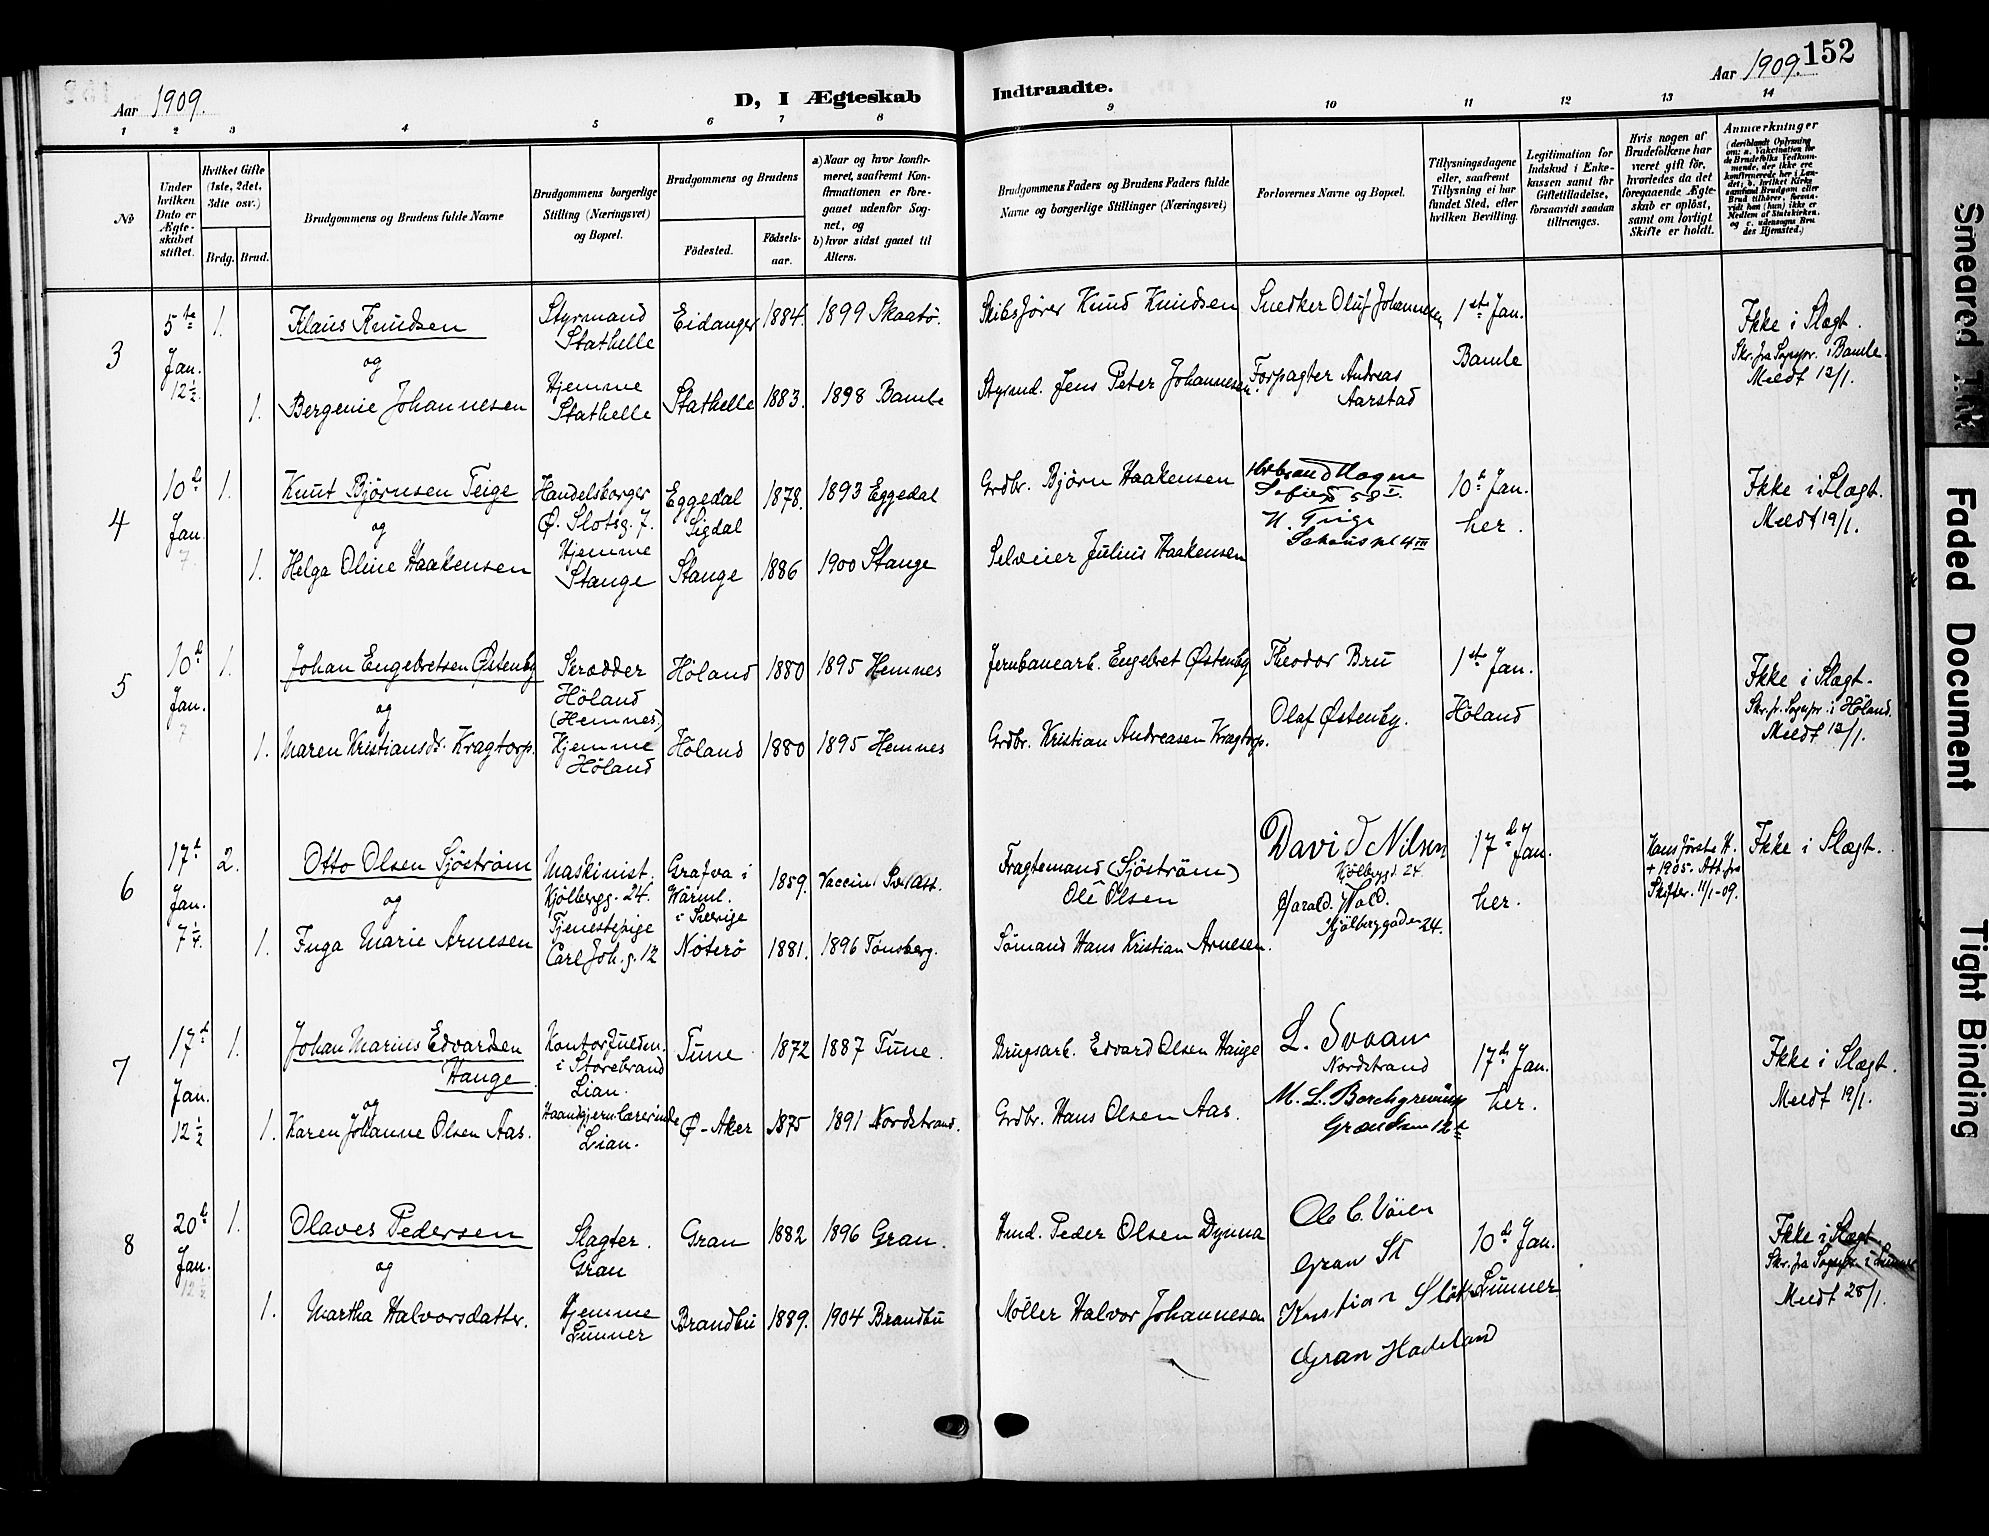 Aar 1909.
D, I Ægteskab
Indtraadte.
Aar 1909.
152
1 2 3 4 5 6 7 8
9 10 11 12 13 14
No
Under hvilken Dato er Ægteskabet stiftet.
Hvilket Gifte (1ste, 2det, 3dte osv.)
Brdg. Brud.
Brudgommens og Brudens fulde Navne
Brudgommens borgerlige Stilling (Næringsvei) og Bopæl.
Brudgommens og Brudens
Födested.
Födselsaar.
a) Naar og hvor konfirmeret, saafremt Konfirmationen er foregaaet udenfor Sognet, og
b) hvor sidst gaaet til Alters.
Brudgommens Faders og Brudens Faders fulde Navne og borgerlige Stillinger (Næringsvei)
Forlovernes Navne og Bopæl.
Tillysningsdagene eller, saafremt Tillysning ei har fundet Sted, efter hvilken Bevilling.
Legitimation for Indskud i Enkekassen samt for Giftetilladelse, forsaavidt saadan tiltrænges.
Hvis nogen af Brudefolkene har været gift før, hvorledes da det foregaaende Ægteskab er oplöst, samt om lovligt Skifte er holdt.
Anmærkninger
(deriblandt Oplysning om: a. Vakcination for de Brudefolks Vedkommende, der ikke ere konfirmerede her i Landet; b. hvilket Kirkesamfund Brudgom eller Brud tilhører, forsaavidt han (hun) ikke er Medlem af Statskirken, og c. udensogns Brudes Hjemsted.)
3
5te Jan. 12½
1.
Klaus Knudsen
Styrmand Stathelle
Eidanger
1884.
1899 Skaatö.
Skibsfører Knud Knudsen
Snedker Oluf Johannesen
1st Jan. Bamle
Ikke i Slægt.
Skr. fra Sognpr. i Bamle.
Meldt 12/1.
og
1.
Bergenie Johannesen
Hjemme Stathelle
Stathelle
1883.
1898 Bamle
Styrmd. Jens Peter Johannesen.
Forpagter Andreas Aarstad
4
10d Jan 7
1.
Knut Bjørnsen Teige
Handelsborger Ø. Slotsg. 7.
Eggedal Sigdal
1878.
1893 Eggedal
Grdbr. Bjørn Haakensen
10d Jan. her.
Ikke i Slægt.
Meldt 19/1.
og
1.
Helga Oline Haakensen
Hjemme Stange
Stange
1886
1900 Stange
Selveier Julius Haakensen
5
10d Jan. 7
1.
Johan Engebretsen Østenby
Skrædder Höland (Hemnes)
Höland
1880
1895 Hemnes
Jernbanearb. Engebret Østenby
Theodor Bru
1st Jan. Höland
Ikke i Slægt.
Skr. fr. Sognpr. i Höland.
Meldt 12/1.
og
1.
Maren Kristiansdr. Kragtorp.
Hjemme Höland
Höland
1880
1895 Hemnes
Grdbr. Kristian Andreasen Kragtorp.
Olaf Østenby.
6
17d Jan. 7¼
2.
Otto Olsen Sjöström
Maskinist. Kjölbergg. 24.
Grafva i Wärml. i Sverige
1859.
Vaccin.
Fragtemand (Sjöström) Ole Olsen
David Nilsen Kjölbergg. 24
17d Jan. her.
Hans første H. + 1905. Att. fra Skifter. 11/1-09.
Ikke i Slægt.
og
1.
Inga Marie Arnesen
Tjenestepige Carl Joh. g. 12
Nöterö
1881.
1896 Tønsberg.
Sömand Hans Kristian Arnesen.
Harald Wold. Kjölberggaden 24.
7
17d Jan. 12½
1.
Johan Marius Edvardsen Hauge.
Kontorfuldm. i Storebrand Lian.
Tune
1872
1887 Tune.
Brugsarb. Edvard Olsen Hauge
L. Svaan Nordstrand
17d Jan. her.
Ikke i Slægt.
Meldt 19/1.
og
1.
Karen Johanne Olsen Aas.
Haandgjernlærerinde Lian.
Ø-Aker
1875
1891 Nordstrand.
Grdbr. Hans Olsen Aas.
M. L. Borchgrevink
8
20d Jan. 12½
1.
Olaves Pedersen
Slagter. Gran
Gran
1882
1896 Gran.
Hmd. Peder Olsen Dynna
Gran St
10d Jan. Lunner.
Ikke i Slægt.
Skr. fra Sognpr. i Lunner
Meldt 28/1.
og
1.
Martha Halvorsdatter.
Hjemme Lunner
Brandbu
1889.
1904 Brandbu
Møller Halvor Johannesen
Gran Hadeland
Smeared Ink
Faded Document
Tight Binding